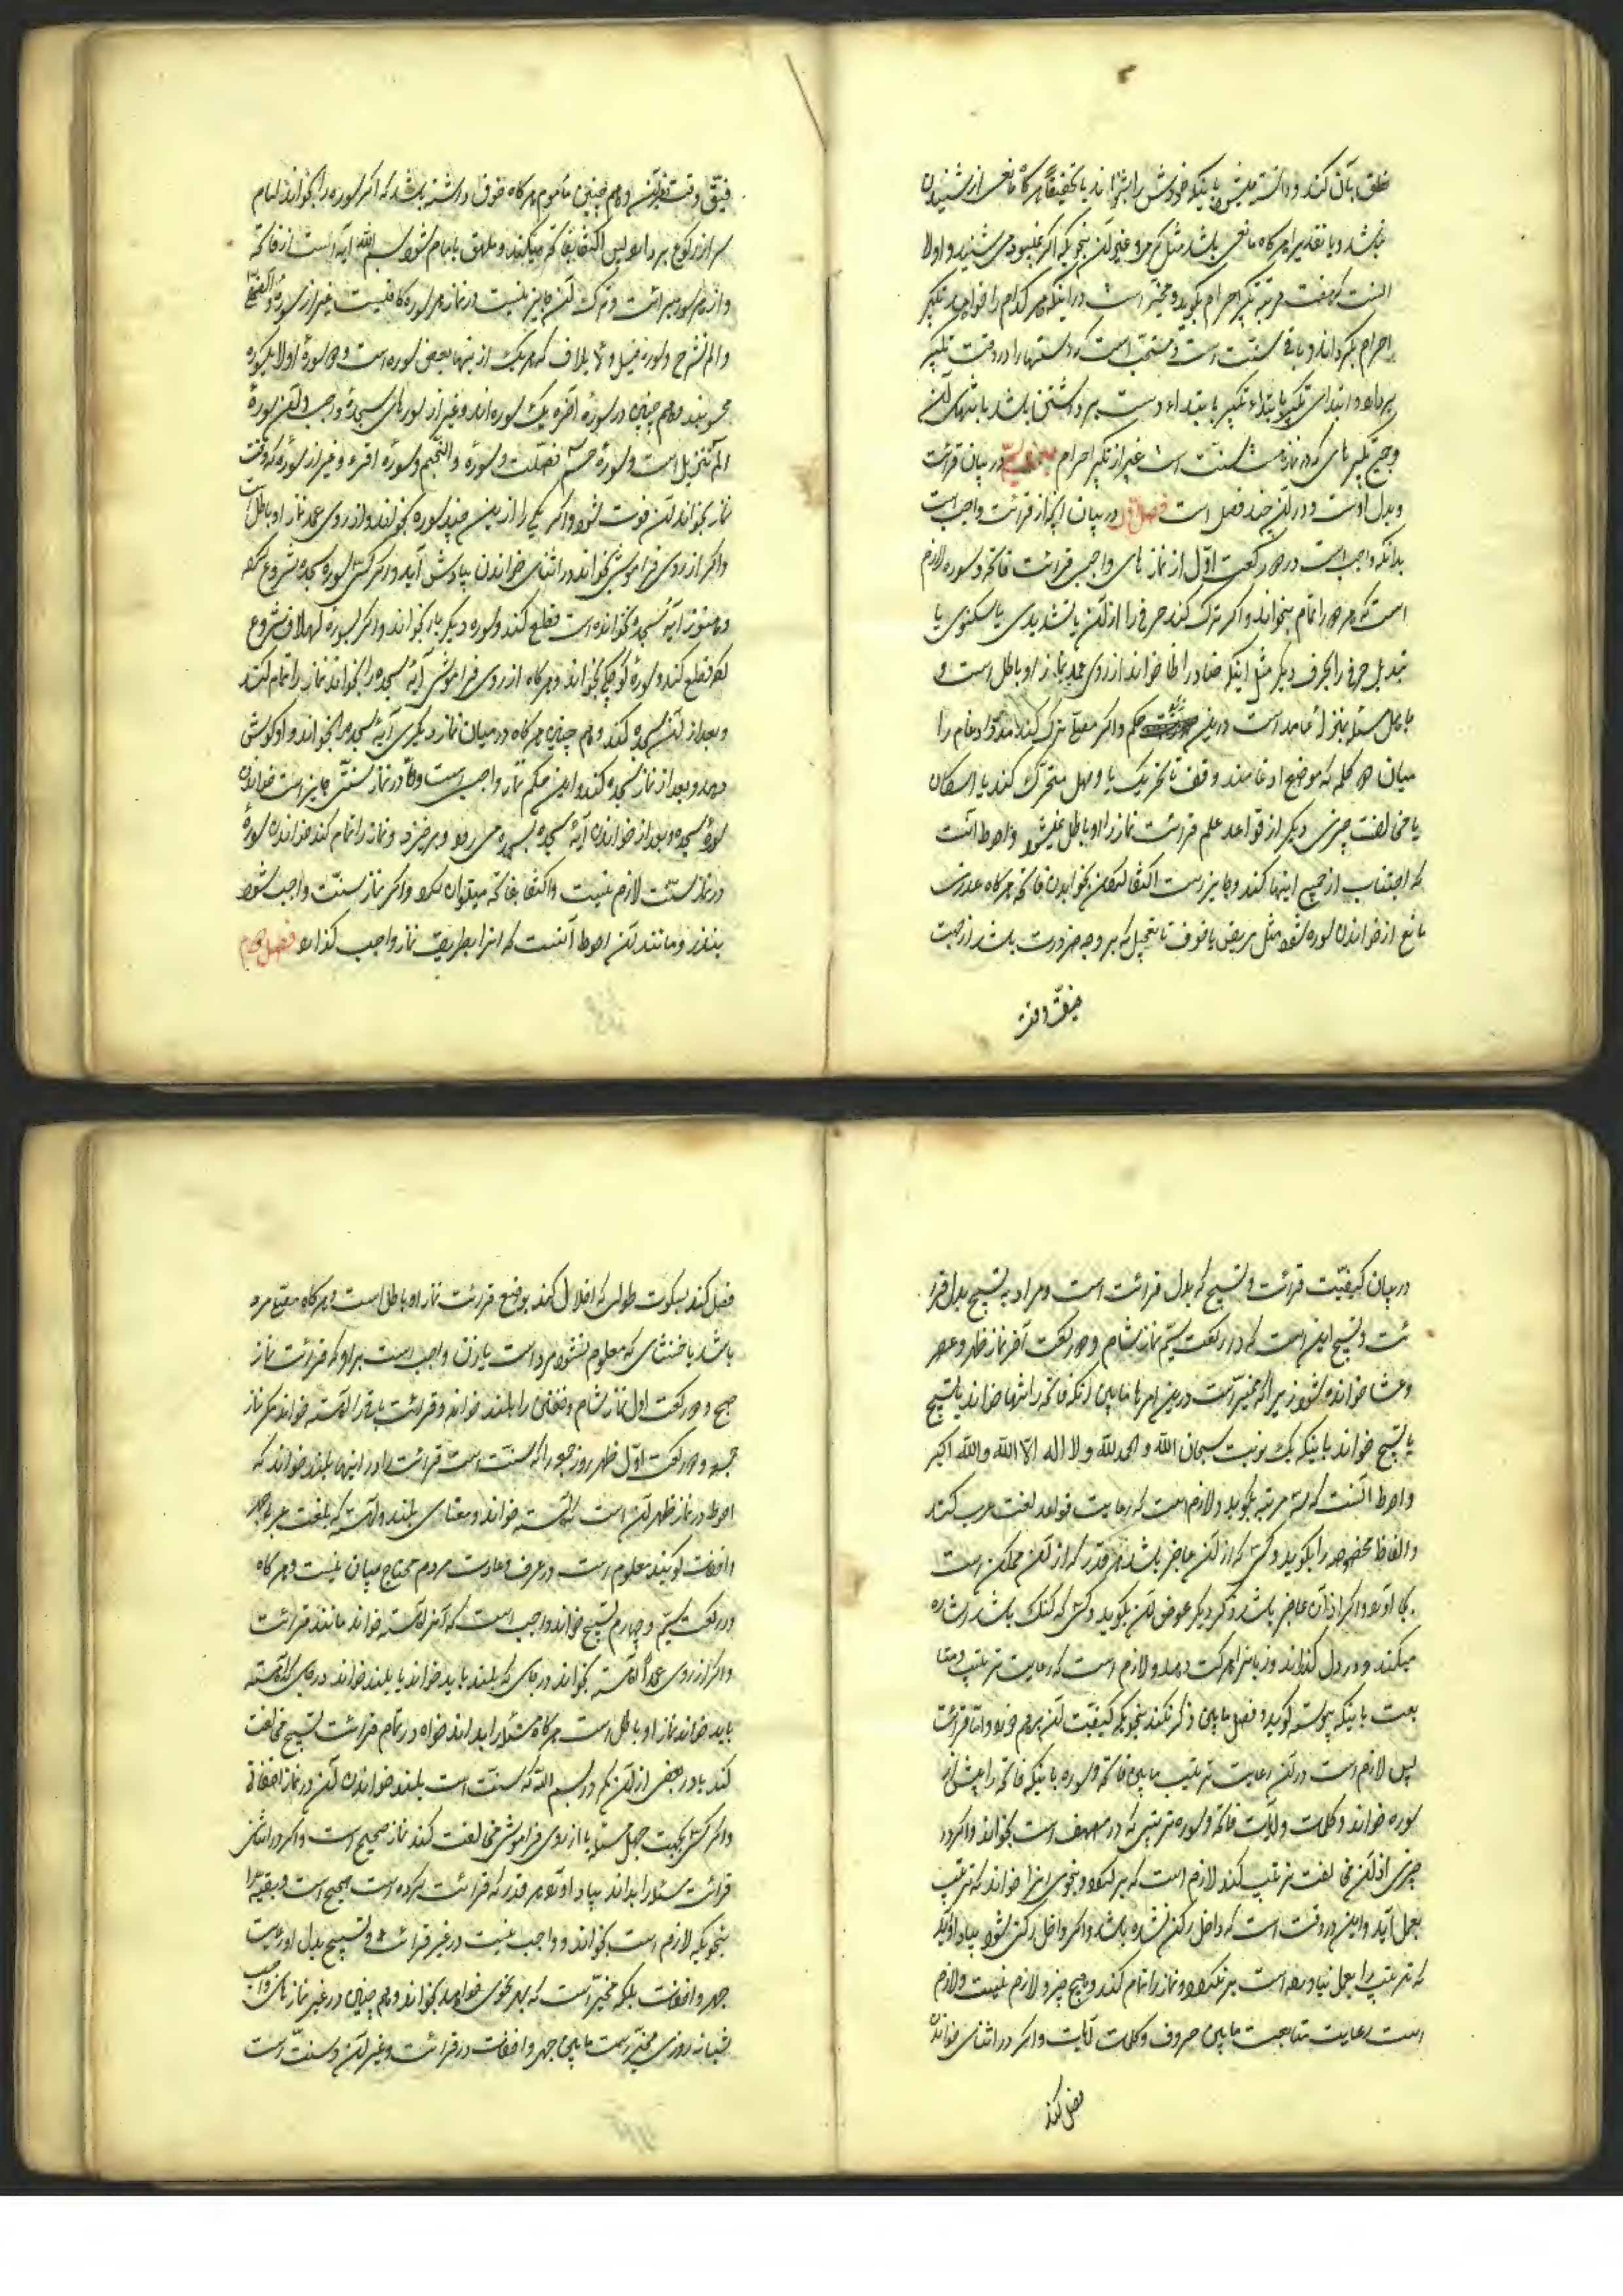 خلق بآن کند و دانسته میشود باینکه خودش را بشنواند یا تحقیقا هرگاه مانعی از شنیدن
نباشد و یا تقدیرا هرگاه مانعی باشد مثل کر و غیر آن بنحویکه اگر نمیبود میشنید و اولا
آنست که هفت مرتبه تکبیر احرام بگوید و مخیر است در اینکه هر کدام را خواهد تکبیر
احرام بگرداند و باقی سنت است و مستحب است که دستها را در وقت تکبیر
بردارد و ابتدای تکبیر با ابتداء دست برداشتن باشد با منتهای آن
و جمیع تکبیرهای که در نماز است سنت است غیر از تکبیر احرام در بیان قرائت
و بدل اوست و در آن چند فصل است فصل اول در بیان آنچه از قرائت واجب است
بدانکه واجب است در دو رکعت اول از نمازهای واجب قرائت فاتحه و سوره لازم
است که هر دو را تمام بخواند و اگر ترک کند حرفی را از آن یا تشدیدی یا سکونی یا
تبدیل حرفی را بحرف دیگر مثل اینکه ضاد را ظا خواند از روی عمد نماز او باطل است و
جاهل مسئله بمنزله عامد است در این حکم و اگر مصلی ترک کند مد و ادغام را
میان دو کلمه که موضع ادغامند و وقف بتحریک یا وصل متحرک کند یا اسکان
یا مخالفت چیزی دیگر از قواعد علم قرائت نماز را او باطل نمیشود و احوط آنست
که اجتناب از جمیع اینها کند و جایز است اکتفا کردن بخواندن فاتحه هرگاه عذری
مانع از خواندن سوره شود مثل مریض یا خوف یا تعجیل که بر وجه ضرورت باشد از جهت
ضیق وقت
ضیق وقت و هم چنین مأموم هرگاه خوف داشته باشد که اگر سوره را بخواند امام
سر از رکوع بردارد پس اکتفا بفاتحه میکند و ملحق بامام شود بسم الله آیه است از فاتحه
و از هر سوره سوای برائت و ترک آن جایز نیست در نماز هر سوره کافیست غیر از سوره والضحی
و الم نشرح و سوره فیل و لایلاف که هر یک از اینها بعض سوره است و دو سوره اولا یک سوره
محسوبند و هم چنین دو سوره آخره یک سوره اند و غیر از سورهای سجده واجب و آن سوره
الم تنزیل است و سوره حم فصلت و سوره والنجم و سوره اقرء و غیر از سوره که وقت
نماز بخواند آن فوت شود و اگر یکی را از این چند سوره بخواند از روی عمد نماز او باطل است
و اگر از روی فراموشی بخواند در اثنای خواندن بیادش آید و اگر کسی سوره سجده شروع کند
و هنوز آیه سجده نخوانده است قطع کند و سوره دیگر بار بخواند و اگر سوره طولانی شروع
کند قطع کند و سوره کوچکی بخواند و هرگاه از روی فراموشی آیه سجده را بخواند نماز را تمام کند
و بعد از آن سجده کند و هم چنین هرگاه در میان نماز دیگری آیه سجده بخواند و او گوش
دهد و بعد از نماز سجده کند و این حکم نماز واجب است و اما در نماز سنتی جایز است خواندن
سوره سجده و بعد از خواندن آیه سجده بسجده میرود و برخیزد و نماز را تمام کند خواندن سوره
در نماز سنت لازم نیست و اکتفا بفاتحه میتوان کرد و اگر نماز سنت واجب شود
بنذر و مانند آن احوط آنست که انرا بطریق نماز واجب گذارد فصل دوم
در بیان کیفیت قرائت و تسبیح که بدل قرائت است و مراد به تسبیح بدل قرا
ئت و تسبیح این است که در رکعت سیم نماز شام و دو رکعت آخر نماز ظهر و عصر
و عشا خوانده شود زیرا که مخیر است در این امرها مابین آنکه فاتحه را تنها خواند یا تسبیح
یا تسبیح خواند باینکه یک نوبت سبحان الله و الحمد لله و لا اله الا الله و الله اکبر
و احوط آنست که سه مرتبه بگوید و لازم است که رعایت قواعد لغت عرب کند
و الفاظ مخصوصه را بگوید و کسی که از آن عاجز باشد هر قدر که از آن ممکن است
بجا آورد و اگر از آن عاجز باشد ذکر دیگر عوض آن بگوید و کسی که گنگ باشد اشاره
میکند و در دل گذراند و زبانرا حرکت دهد و لازم است که رعایت ترتیب و متا
بعت باینکه پیوسته گوید و فصل مابین ذکر نکند بنحویکه کیفیت آن برهم خورد و اما قرائت
پس لازم است در آن رعایت ترتیب مابین فاتحه و سوره باینکه فاتحه را پیش از
سوره خواند و کلمات و آیات فاتحه و سوره بترتیبی که در مصحف است بخواند و اگر در
چیزی از آن مخالفت ترتیب کند لازم است که برگردد و بنحوی انرا خواند که ترتیب
بعمل آید و این در وقت است که داخل رکن نشده باشد و اگر داخل رکن شود بیاد او آید
که ترتیب را بعمل نیاورده است برنگردد و نماز را تمام کند و هیچ چیز و لازم نیست و لازم
است رعایت متابعت مابین حروف و کلمات آیات و اگر در اثنای خواندن
فصل کند
فصل کند بسکوت طولی که اخلال کند بوضع قرائت نماز او باطل است و هرگاه مصلی مرد
باشد یا خنثای که معلوم نشود مرد است یا زن واجب است بر او که قرائت نماز
صبح و دو رکعت اول نماز شام و خفتن را بلند خواند و قرائت باقی را آهسته خواند مگر نماز
جمعه و دو رکعت اول ظهر روز جمعه را که سنت است قرائت را در اینها بلند خواند که
احوط در نماز ظهر آن است که آهسته خواند و معنای بلند و آهسته که بلغت عرب جهر
و اخفات گویند معلوم است در عرف و عادت مردم محتاج ببیان نیست و هرگاه
در رکعت سیم و چهارم تسبیح خواند واجب است که آنرا آهسته خواند مانند قرائت
و اگر از روی عمد آهسته بخواند در جای که بلند باید خواند یا بلند خواند در جای که آهسته
باید خواند نماز او باطل است هرگاه مسئله را بداند خواه در تمام قرائت تسبیح مخالفت
کند یا در بعضی از آن مگر در بسم الله که سنت است بلند خواندن آن در نماز اخفاتی
و اگر کسی بجهت جهل مسئله یا از روی فراموشی مخالفت کند نماز صحیح است و اگر در اثنای
قرائت مسئله را بداند بیاد او آورد هر قدر که قرائت کرده است صحیح است و بقیه را
بنحویکه لازم است بخواند و واجب نیست در غیر قرائت و تسبیح بدل او نیست
جهر و اخفات بلکه مخیر است که بهر نحوی خواهد بخواند و هم چنین در غیر نمازهای واجب
شبانه روزی مخیر است مابین جهر و اخفات در قرائت و غیر آن و سنت است